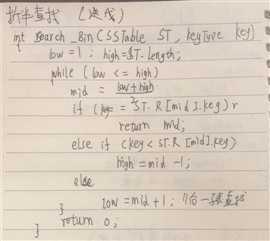 折半查找 (迭代)
int Search_Bin(SSTable ST, KeyType key)
low=1; high=ST.length;
while (low <= high)
mid = low+high
2
if (key = ST.R[mid].key) r
return mid;
else if (key < ST.R[mid].key)
high = mid -1;
else
low = mid +1;
}
return 0;
}